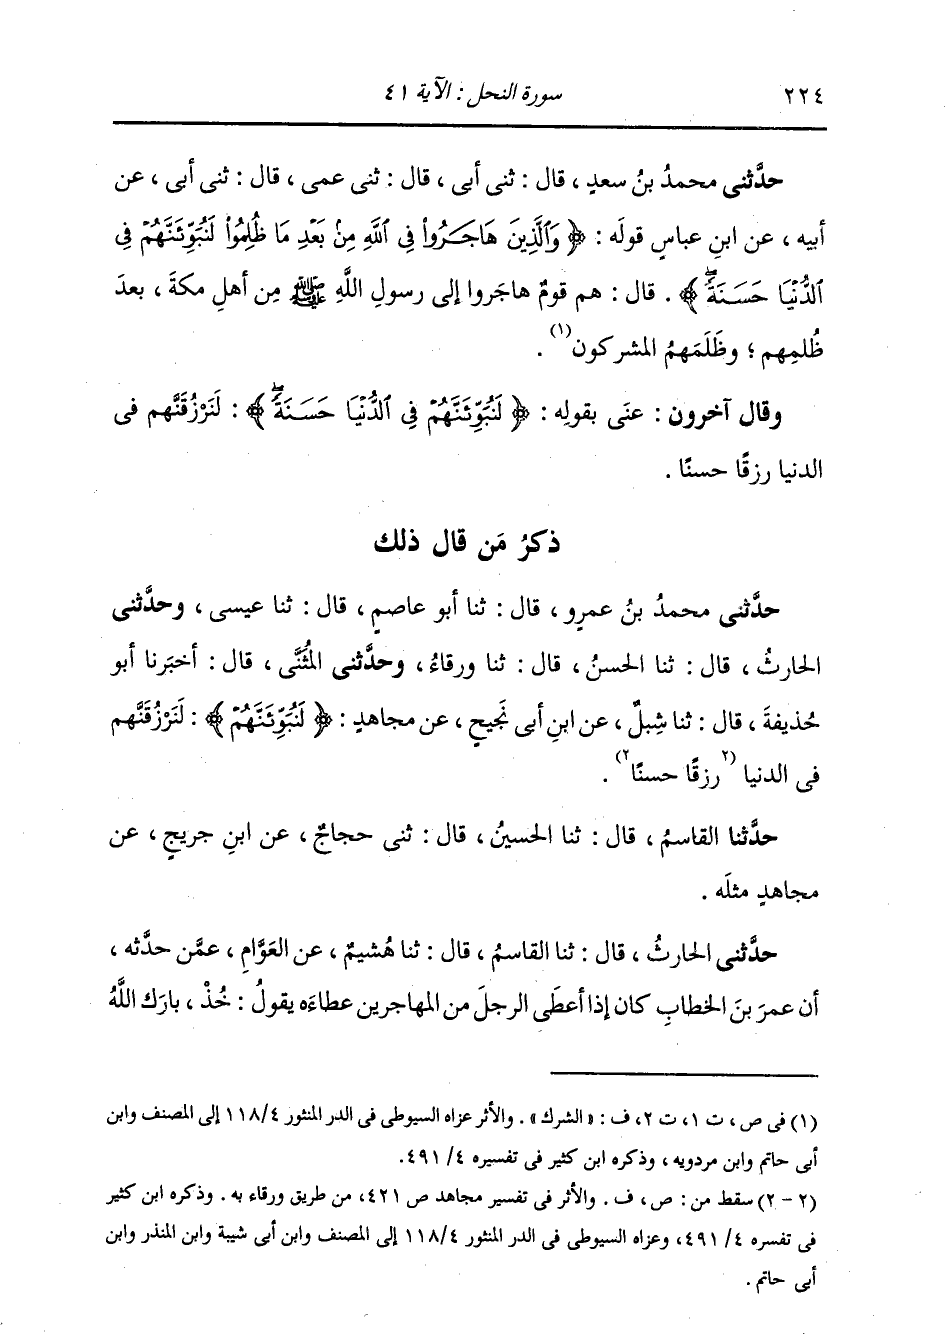 ٢٢٤ سورة النحل : الآية ٤١
حدَّثنى محمدُ بنُ سعدٍ ، قال : ثنى أبى ، قال : ثنى عمى ، قال : ثنى أبى ، عن
أبيه ، عن ابنِ عباسٍ قولَه : ﴿ وَٱلَّذِينَ هَاجَكرُوا۟ فِى ٱللَّهِ مِنۢ بَعْدِ مَا ظُلِمُوا۟ لَنُبَوِّئَنَّهُمْ فِى
ٱلدُّنْيَا حَسَنَةًۖ ﴾ . قال : هم قومٌ هاجَروا إلى رسولِ اللَّهِ ﷺ مِن أهلِ مكةَ ، بعدَ
ظُلمِهم ؛ وظَلَمَهمُ المشركون(١) .
وقال آخرون : عنَى بقولِه : ﴿ لَنُبَوِّئَنَّهُمْ فِى ٱلدُّنْيَا حَسَنَةًۖ ﴾ : لَنَرْزُقَنَّهم فى
الدنيا رزقًا حسنًا .
ذكرُ مَن قال ذلك
حدَّثنى محمدُ بنُ عمرٍو ، قال : ثنا أبو عاصمٍ ، قال : ثنا عيسى ، وحدَّثنى
الحارثُ ، قال : ثنا الحسنُ ، قال : ثنا ورقاءُ ، وحدَّثنى المُثَنَّى ، قال : أخبَرنا أبو
حُذيفةَ ، قال : ثنا شِبلٌ ، عن ابنِ أبى نَجيحٍ ، عن مجاهدٍ : ﴿ لَنُبَوِّئَنَّهُمْ ﴾ : لَنَرْزُقَنَّهم
فى الدنيا (٢رزقًا حسنًا٢) .
حدَّثنا القاسمُ ، قال : ثنا الحسينُ ، قال : ثنى حجاجٌ ، عن ابنِ جريجٍ ، عن
مجاهدٍ مثلَه .
حدَّثنى الحارثُ ، قال : ثنا القاسمُ ، قال : ثنا هُشيمٌ ، عن العَوَّامِ ، عمَّن حدَّثه ،
أن عمرَ بنَ الخطابِ كان إذا أعطَى الرجلَ من المهاجرين عطاءَه يقولُ : خُذْ ، بارَك اللَّهُ
(١) فى ص ، ت ١ ، ت ٢ ، ف : « الشرك » . والأثر عزاه السيوطى فى الدر المنثور ١١٨/٤ إلى المصنف وابن
أبى حاتم وابن مردويه ، وذكره ابن كثير فى تفسيره ٤/ ٤٩١.
(٢ - ٢) سقط من : ص ، ف . والأثر فى تفسير مجاهد ص ٤٢١، من طريق ورقاء به . وذكره ابن كثير
فى تفسره ٤/ ٤٩١، وعزاه السيوطى فى الدر المنثور ١١٨/٤ إلى المصنف وابن أبى شيبة وابن المنذر وابن
أبى حاتم .